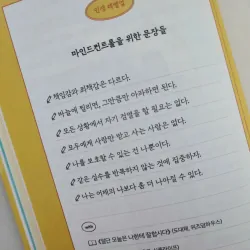 인생 레벨업
마인드컨트롤을 위한 문장들
책임감과 죄책감은 다르다.
바늘에 찔리면, 그만큼만 아파하면 된다.
모든 상황에서 자기 설명을 할 필요는 없다.
모두에게 사랑만 받고 사는 사람은 없다.
나를 보호할 수 있는 건 나뿐이다.
같은 실수를 반복하지 않는 것에 집중하자.
나는 어제의 나보다 좀 더 나아질 수 있다.
일단 오늘은 나한테 잘합시다 (도대체, 위즈덤하우스)